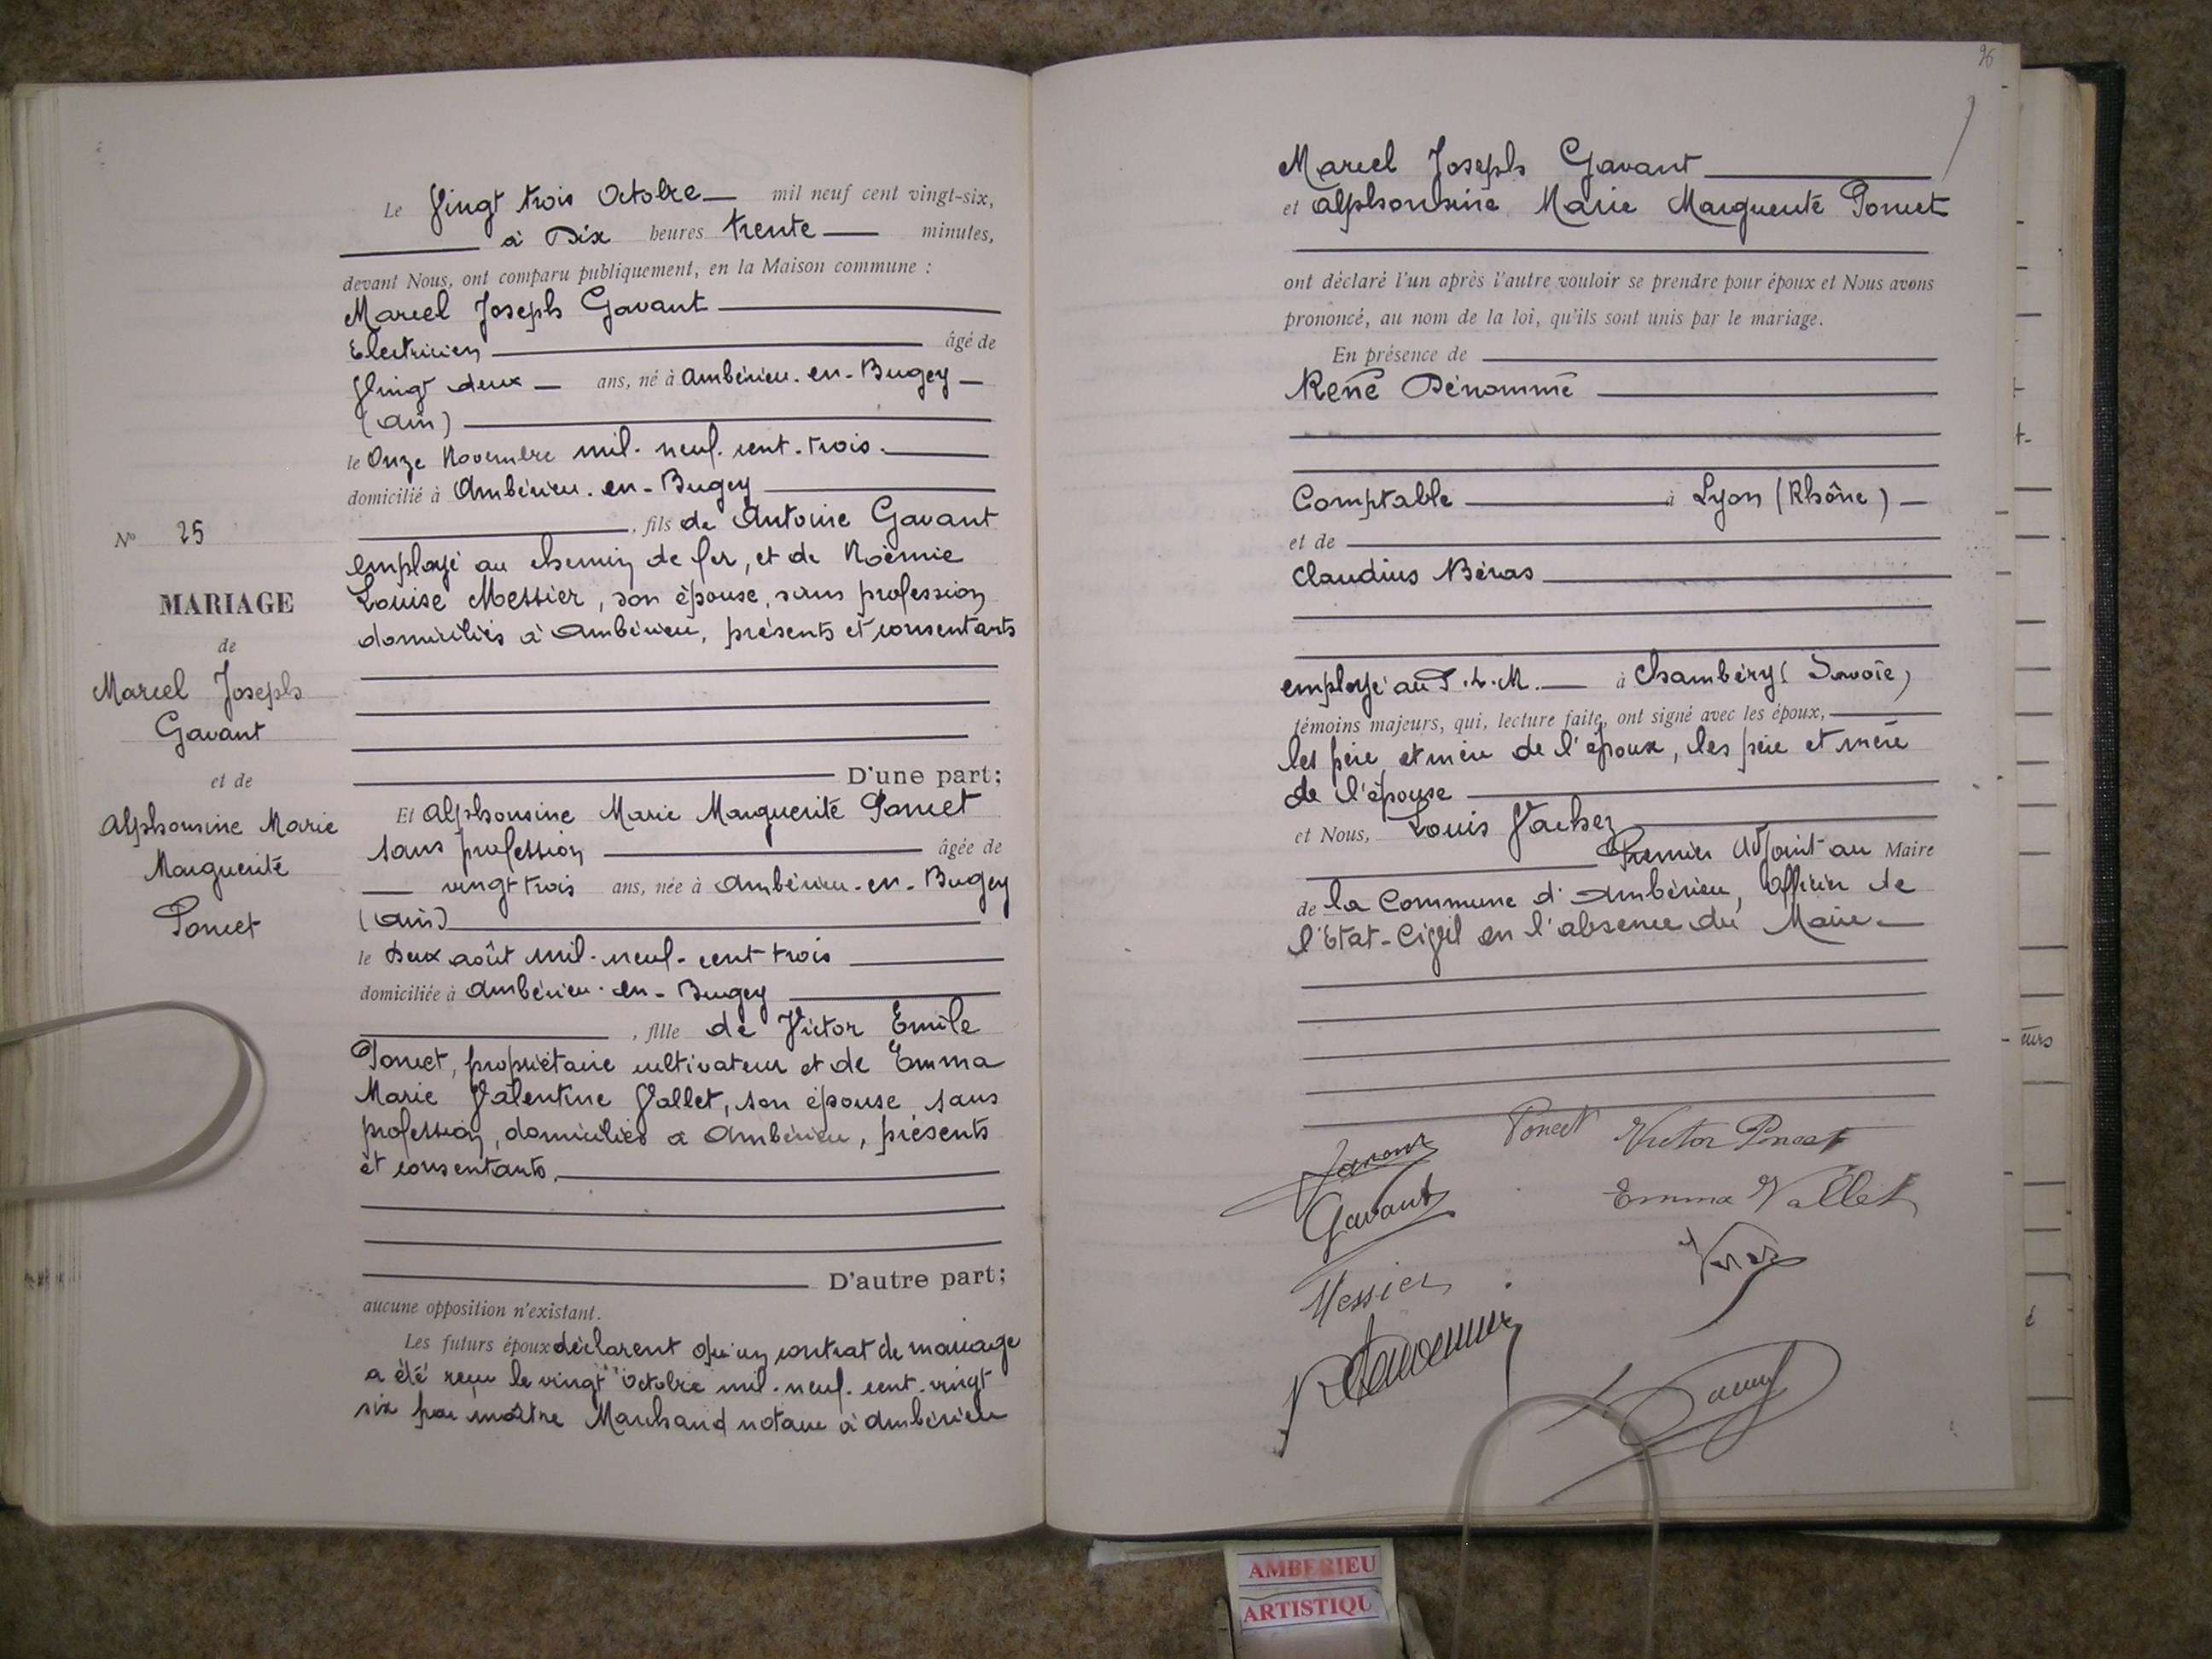 Nº 25
MARIAGE
de
Marcel Joseph
Gavant
et de
Alphonsine Marie
Marguerite
Poncet
Le Vingt trois Octobre mil neuf cent vingt-six,
à Dix heures trente minutes,
devant Nous, ont comparu publiquement, en la Maison commune :
Marcel Joseph Gavant
Electricien âgé de
Vingt deux ans, né à Ambérieu-en-Bugey
(Ain)
le Onze Novembre mil-neuf-cent-trois.
domicilié à Ambérieu-en-Bugey
, fils de Antoine Gavant
employé au chemin de fer, et de Noëmie
Louise Messier, son épouse, sans profession
domiciliés à Ambérieu, présents et consentants
D'une part;
Et Alphonsine Marie Marguerite Poncet
sans profession âgée de
vingt trois ans, née à Ambérieu-en-Bugey
(Ain)
le Deux août mil-neuf-cent trois
domiciliée à Ambérieu-en-Bugey
, fille de Victor Emile
Poncet, propriétaire cultivateur et de Emma
Marie Valentine Vallet, son épouse sans
profession, domiciliés à Ambérieu, présents
et consentants.
D'autre part;
aucune opposition n'existant.
Les futurs époux déclarent qu'un contrat de mariage
a été reçu le vingt Octobre mil-neuf-cent-vingt
six par maître Marchand notaire à Ambérieu
26
Marcel Joseph Gavant
et Alphonsine Marie Marguerite Poncet
ont déclaré l'un après l'autre vouloir se prendre pour époux et Nous avons
prononcé, au nom de la loi, qu'ils sont unis par le mariage.
En présence de
René Dénommé
Comptable à Lyon (Rhône)
et de
Claudius Béras
employé au P.L.M. à Chambéry (Savoie)
témoins majeurs, qui, lecture faite, ont signé avec les époux,
les père et mère de l'époux, les père et mère
de l'épouse
et Nous, Louis Vachez
Premier Adjoint au Maire
de la Commune d'Ambérieu, Officier de
l'Etat-Civil en l'absence du Maire
Poncet Victor Poncet
Gavant
Emma Vallet
Messier
AMBERIEU
ARTISTIQU